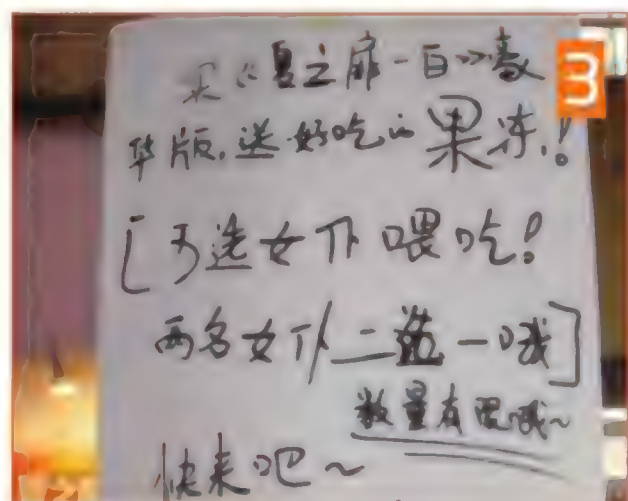 买《夏之扉-白》豪
华版,送好吃的果冻!
[可选女仆喂吃!
两名女仆二选一哦]
数量有限哦~
快来吧~
3